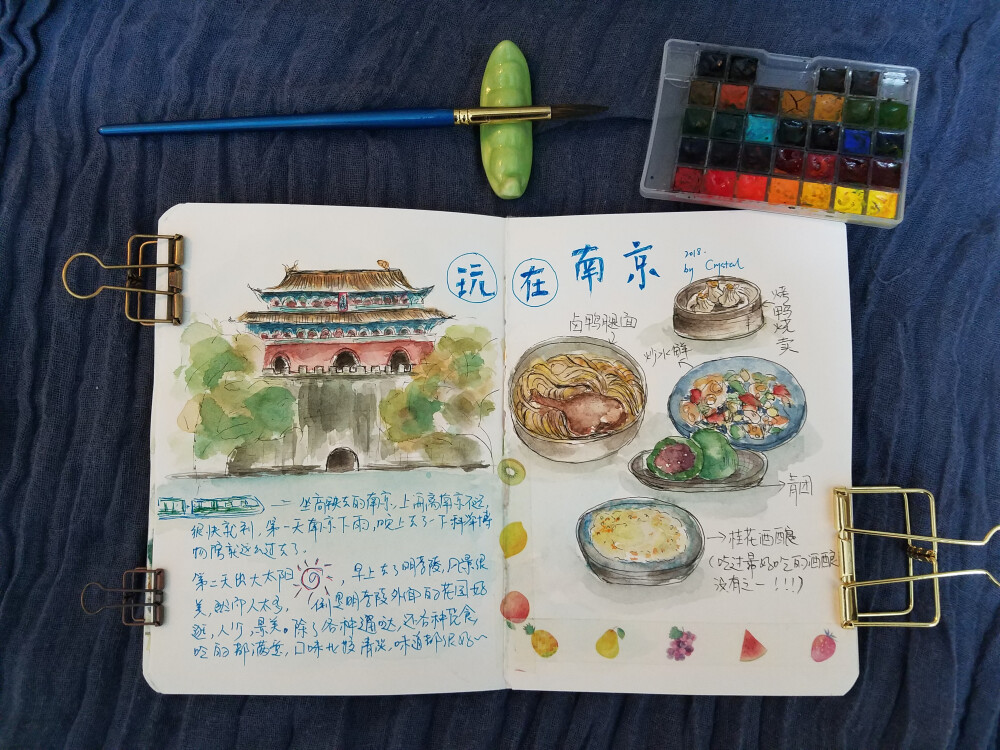 玩在南京
2018.
by Crystal
坐高铁去的南京，上海离南京不远，
很快就到，第一天南京下雨，晚上去了一下科举博
物馆就这么过去了。
第二天出大太阳，早上去了明孝陵，风景很
美，就即人太多，倒是明孝陵外面的花园好
逛，人少，景美。除了各种遛哒，还各种觅食，
吃的都满意，口味比较清淡，味道都很好~
烤鸭烧卖
卤鸭腿面
炒水鲜
青团
桂花酒酿
(吃过最好吃的酒酿
没有之一!!!)